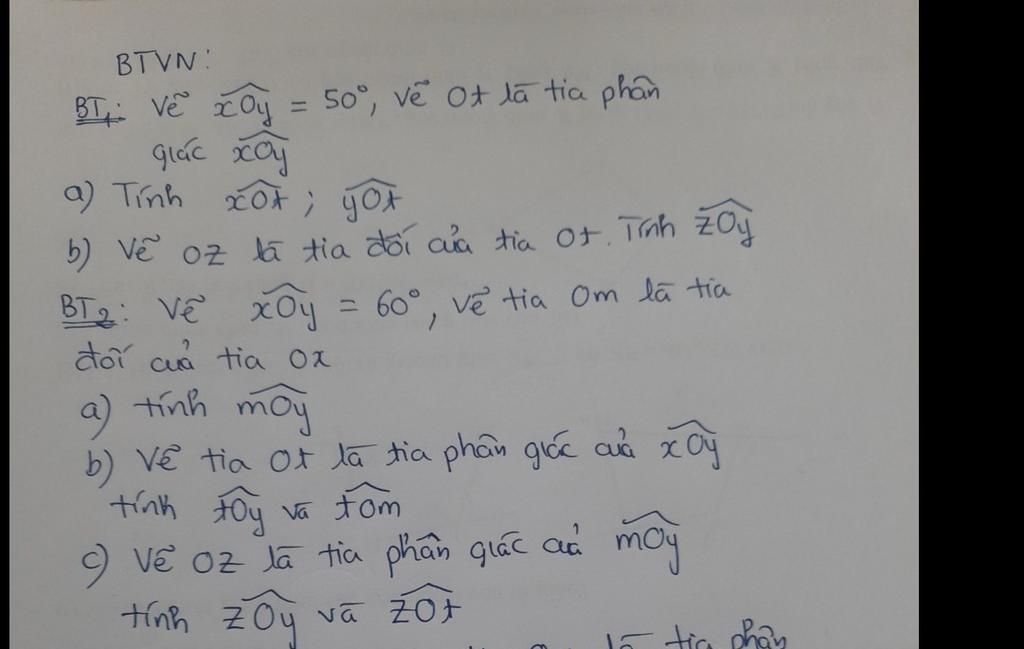 BTVN:
BT1: Vẽ xOy = 50°, vẽ Ot là tia phân
giác xOy
a) Tính xOt ; yOt
b) Vẽ Oz là tia đối của tia Ot. Tính zOy
BT2: Vẽ xOy = 60°, vẽ tia Om là tia
đối của tia Ox
a) tính mOy
b) Vẽ tia Ot là tia phân giác của xOy
tính tOy và tOm
c) Vẽ Oz là tia phân giác của mOy
tính zOy và zOt
là tia phân